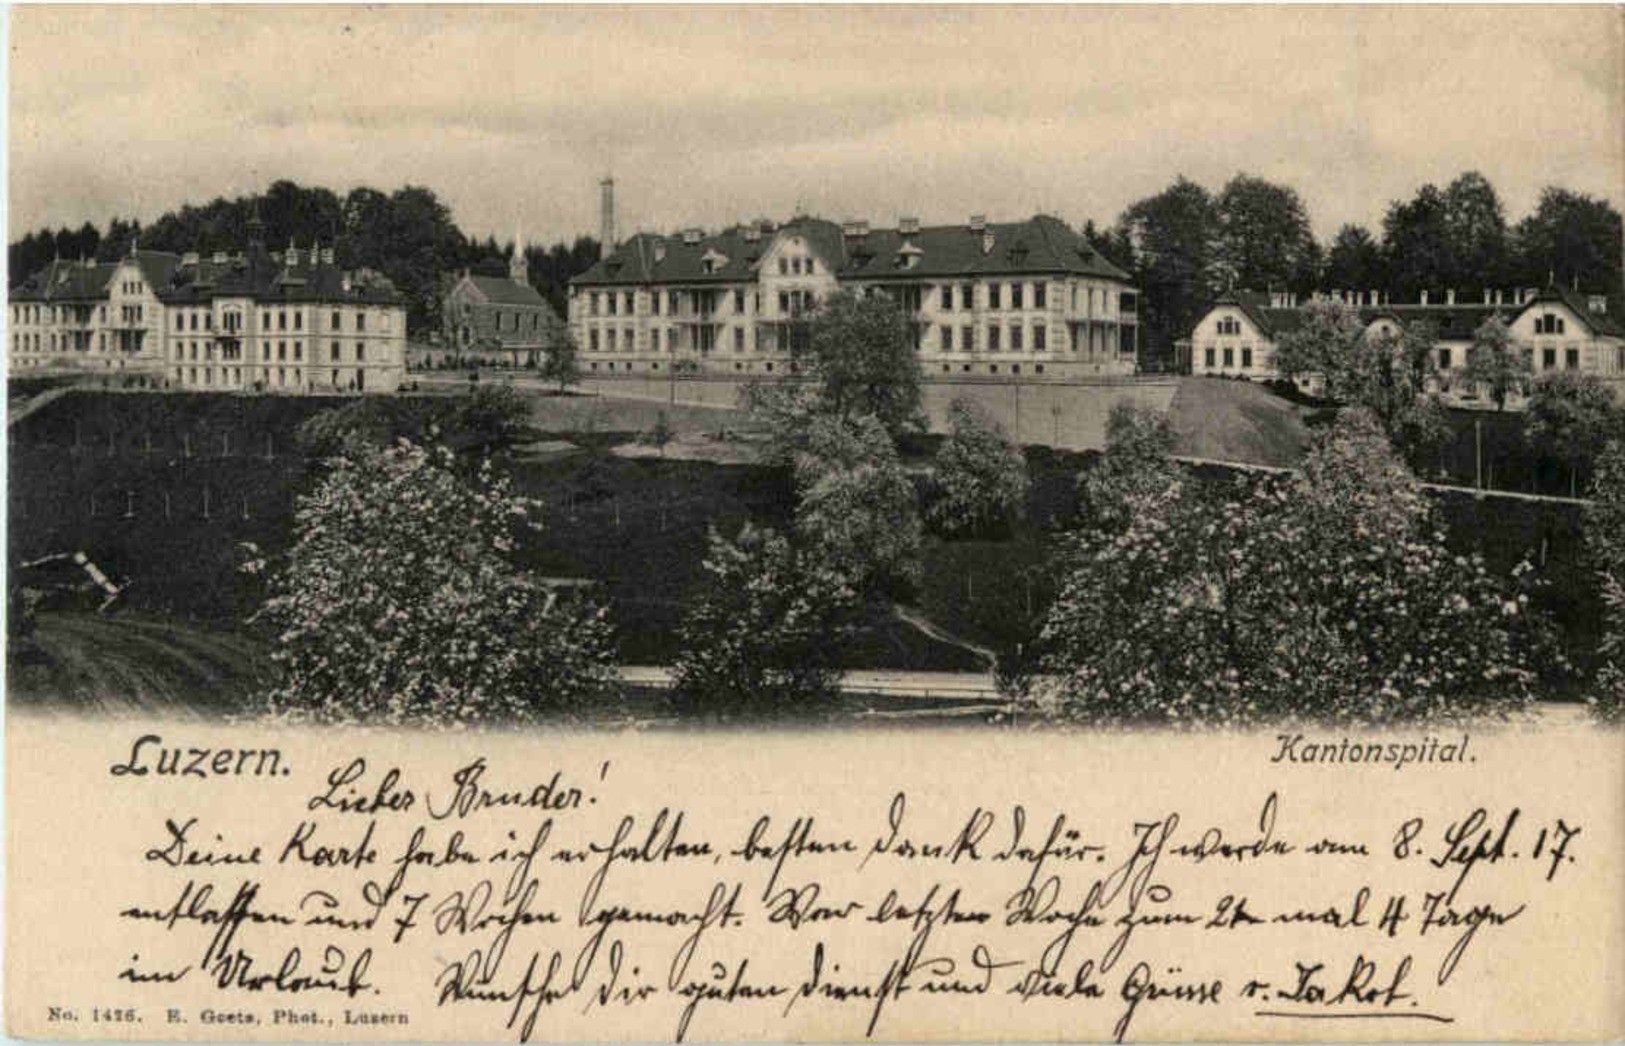 Luzern.
Kantonspital.
Lieber Bruder!
Deine Karte habe ich erhalten, besten Dank dafür. Ich werde am 8. Sept. 17.
entlassen und 7 Wochen gemacht. War letzten Woche zum 2te mal 4 Tage
im Urlaub. Wünsche dir guten Dienst und viele Grüsse v. Jakob.
No. 1426. E. Goetz, Phot., Luzern